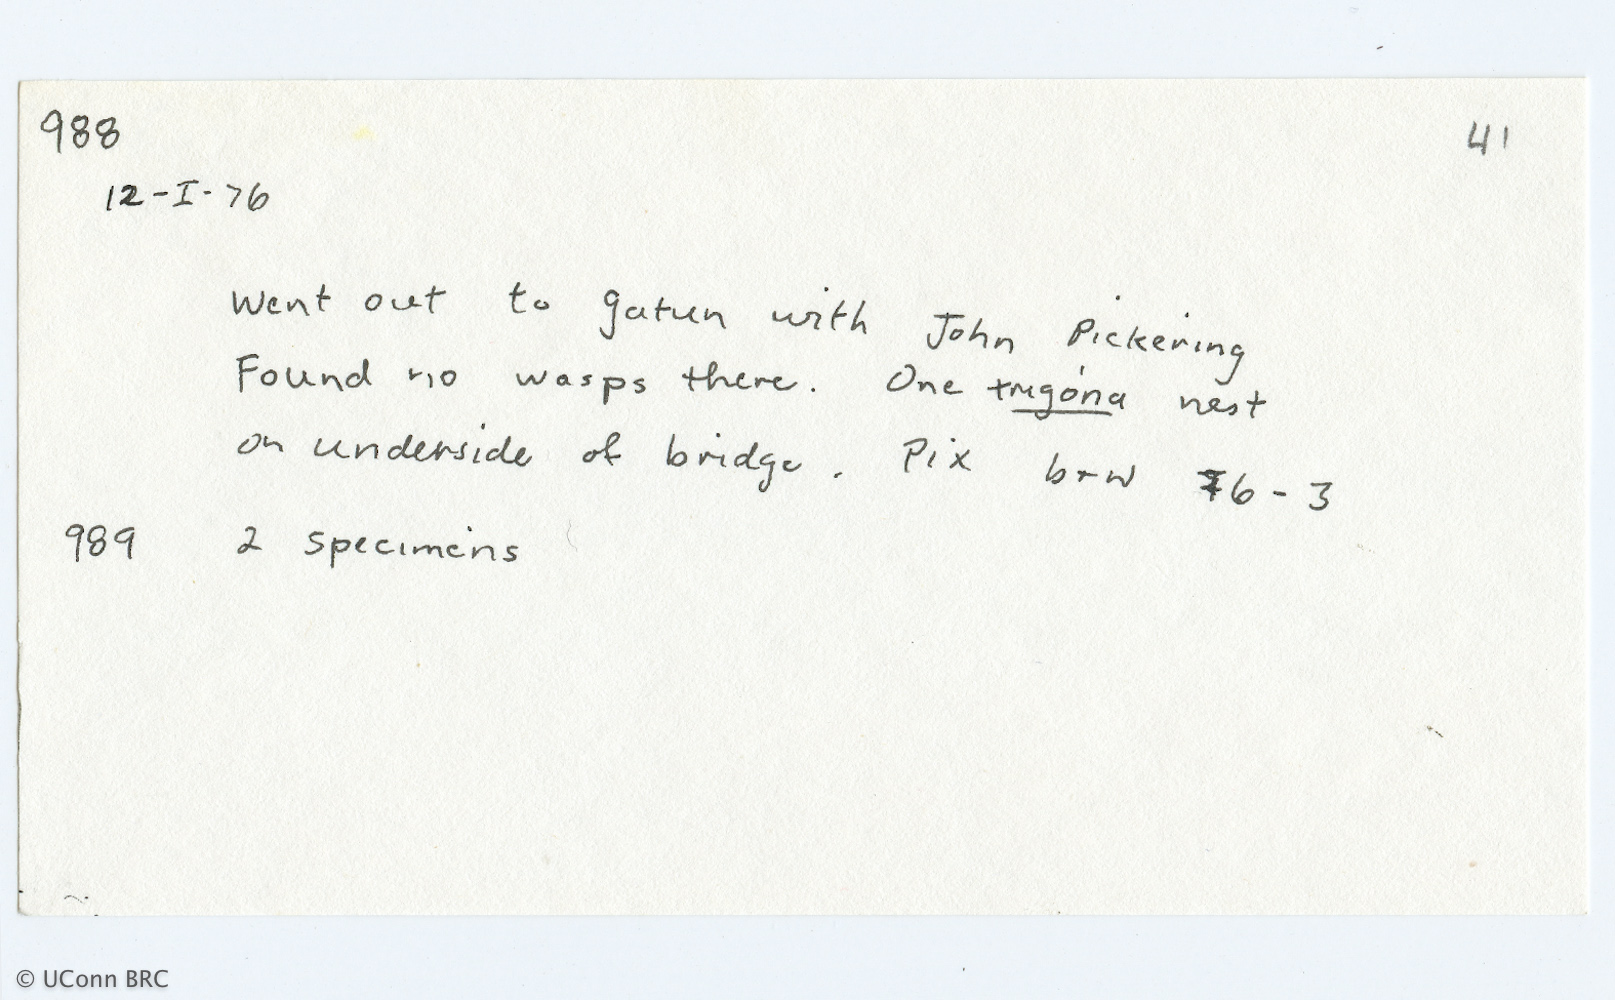 988 41
12-I-76
Went out to gatun with John Pickering
Found no wasps there. One trigona nest
on underside of bridge. Pix b+w 76-3
989 2 specimens
© UConn BRC